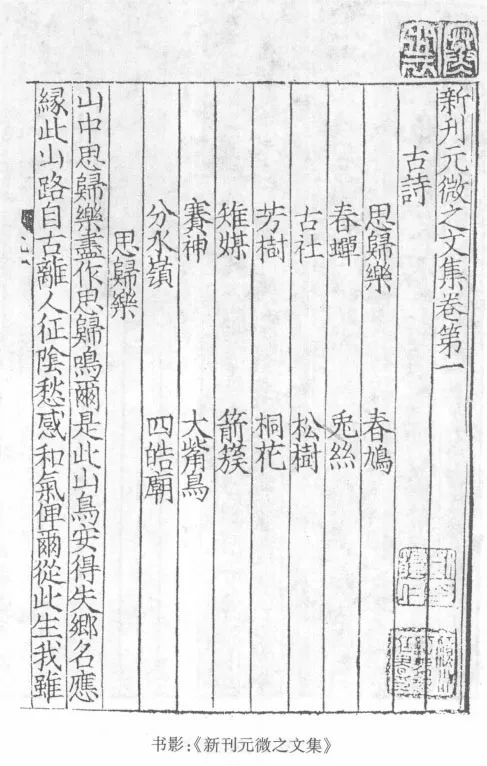 新刊元微之文集卷第一
古詩
思歸樂 春鳩
春蟬 兎絲
古社 松樹
芳樹 桐花
雉媒 箭簇
賽神 大觜烏
分水嶺 四皓廟
思歸樂
山中思歸樂盡作思歸鳴爾是此山鳥安得失鄉名應
緣此山路自古離人征陰愁感和氣俾爾從此生我雖
书影:《新刊元微之文集》